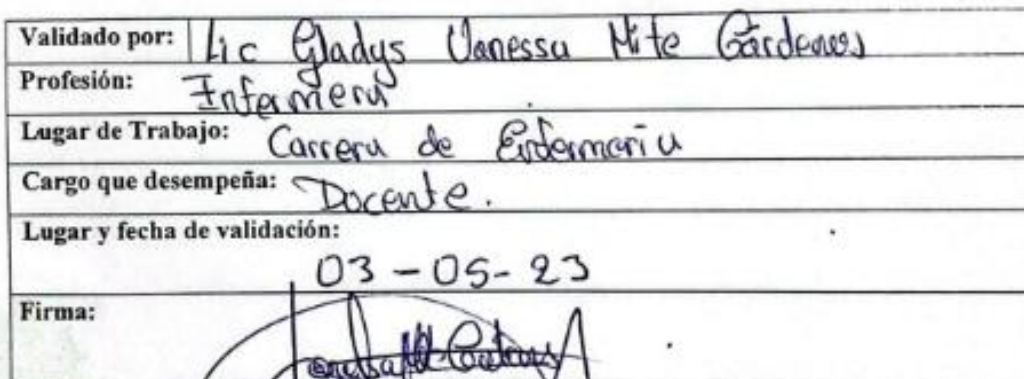 Validado por: Lic Gladys Vanessa Mite Cárdenas
Profesión: Enfermera
Lugar de Trabajo: Carrera de Enfermería
Cargo que desempeña: Docente.
Lugar y fecha de validación:
03-05-23
Firma: